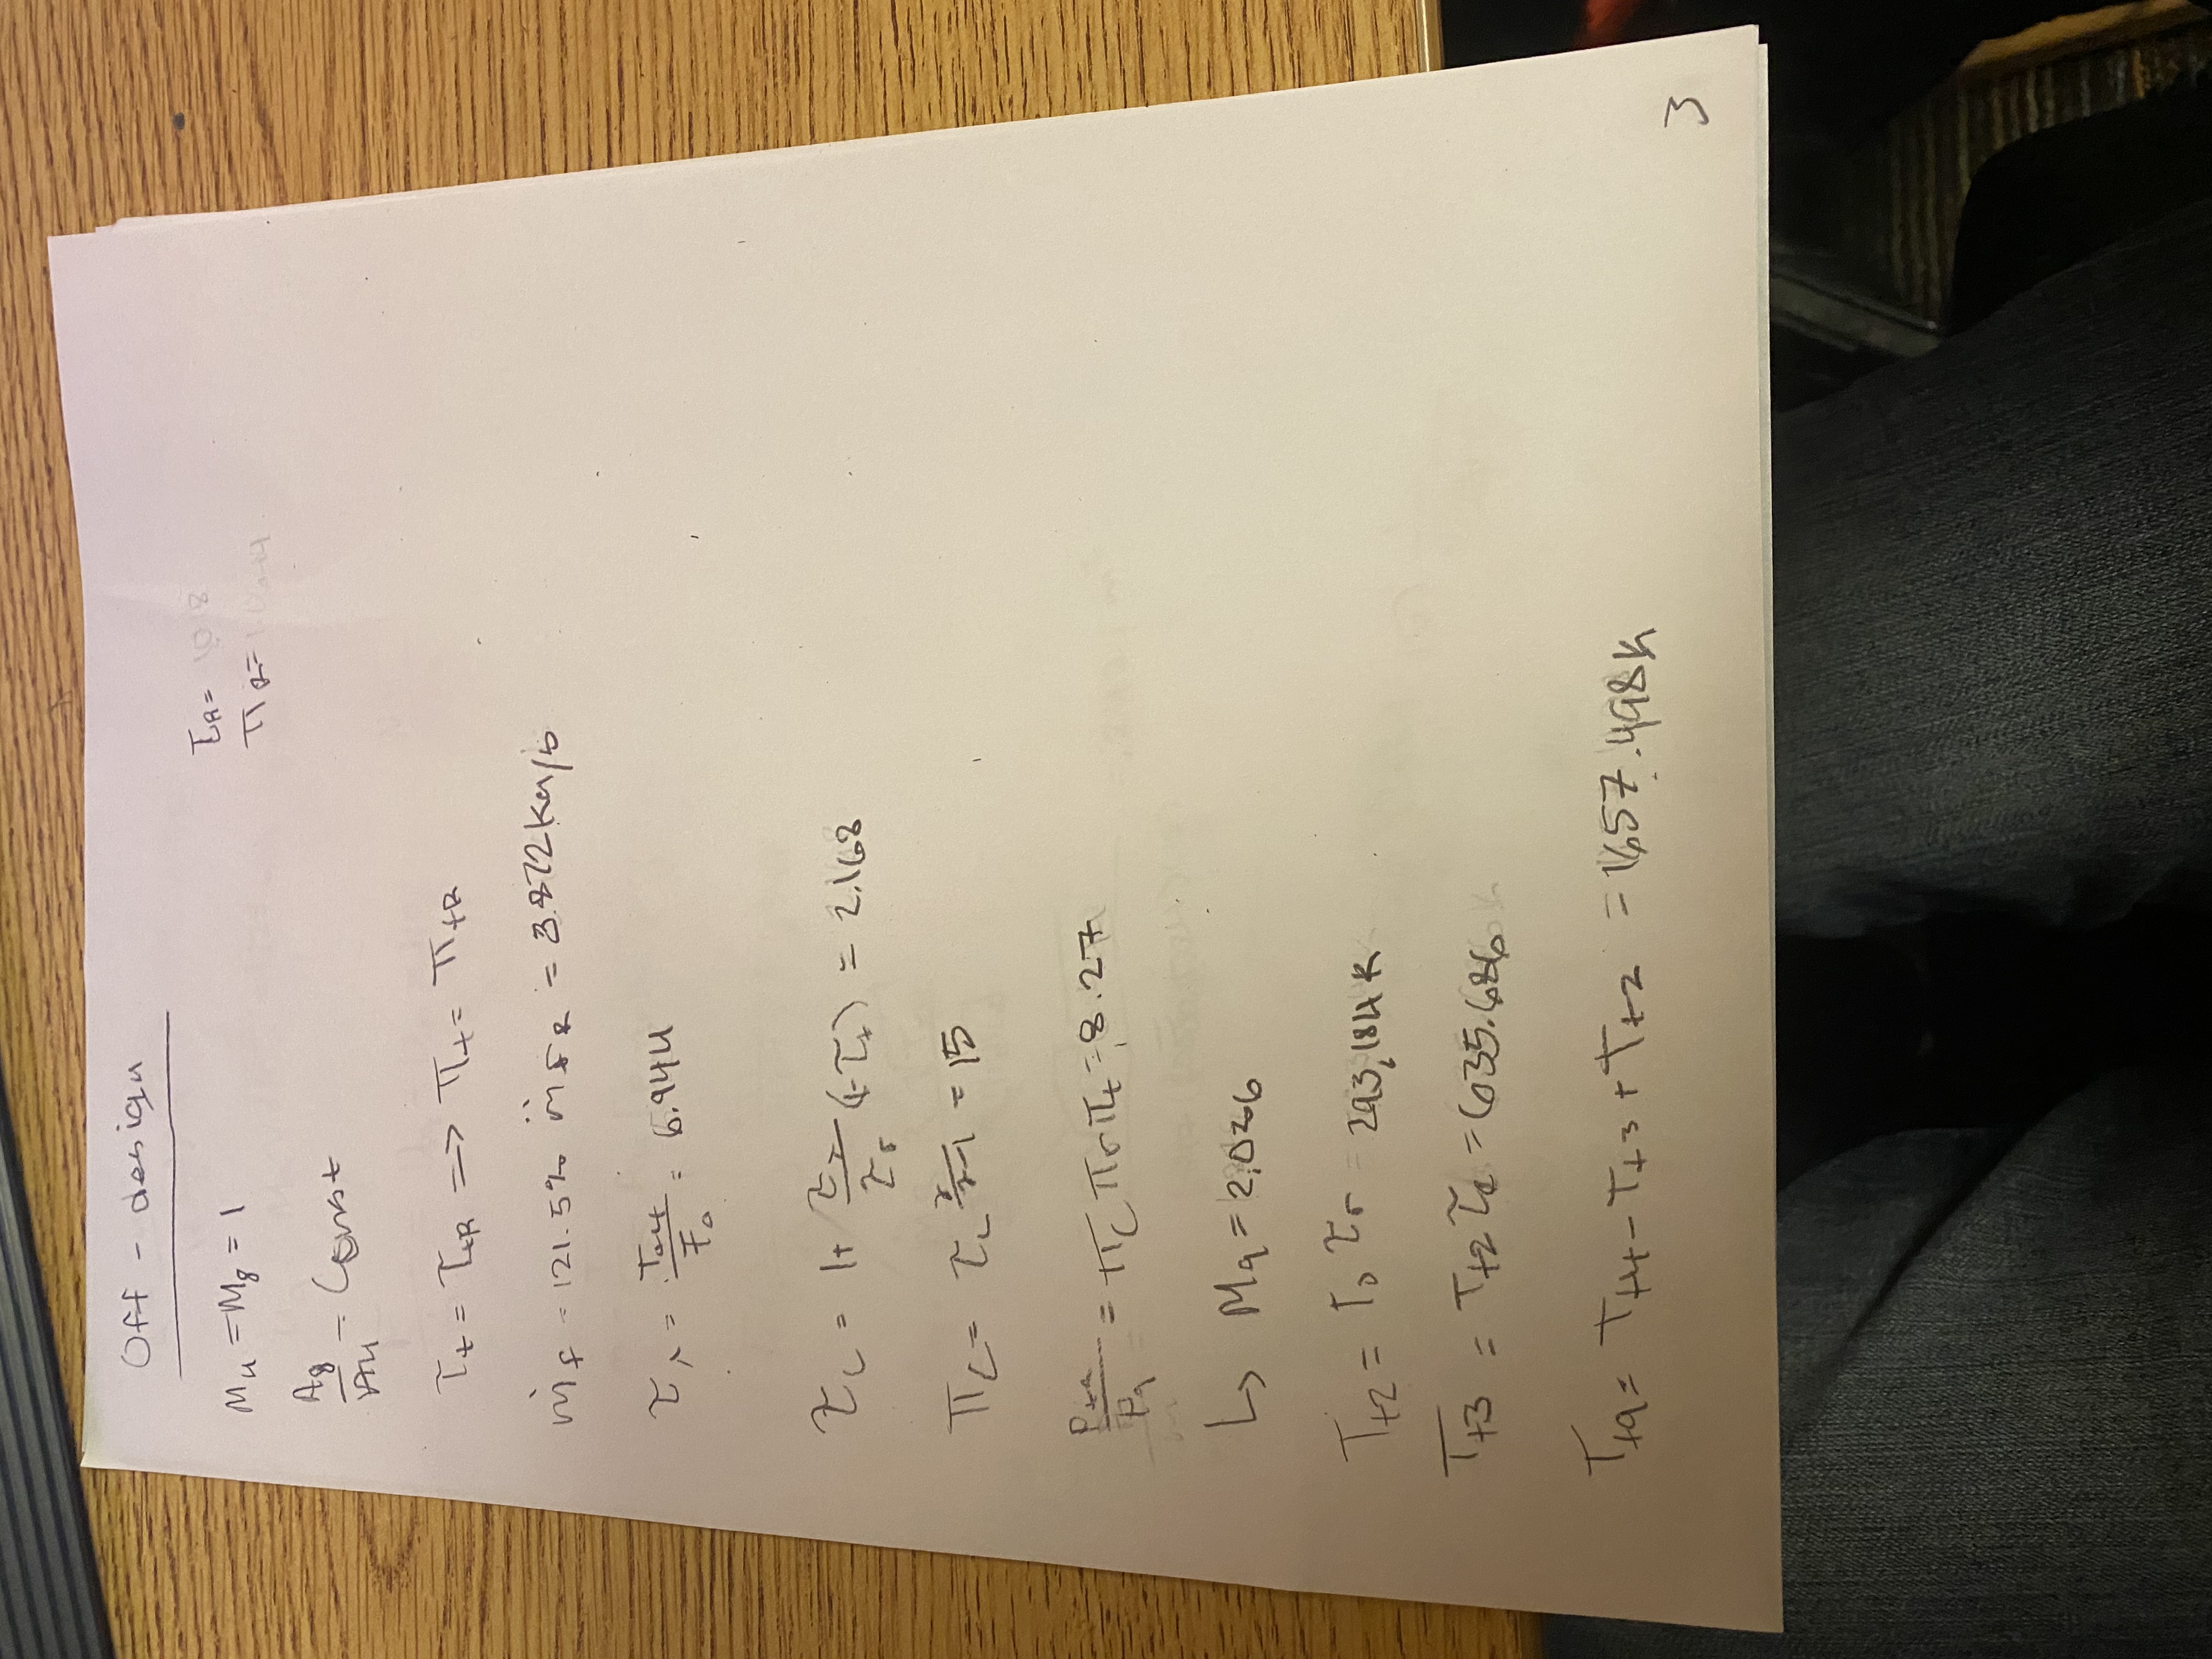 Off - design
τR=
πR=
M4 = M8 = 1
A8/A4 = Const
τt = τtR => πt = πtR
ṁf = 121.5% ṁfR = 3.872 Kg/s
τλ = To4/To = 6.944
τc = 1+ τλ/τr (1-τt) = 2.168
πc = τc^γ/γ-1 = 15
Pt9/P9 = πc πr πt = 8.27
↳ M9 = 2.036
Tt2 = To τr = 293.184 K
Tt3 = Tt2 τc = 635.686
Tt9 = Tt4 - Tt3 + Tt2 = 1657.498 K
3